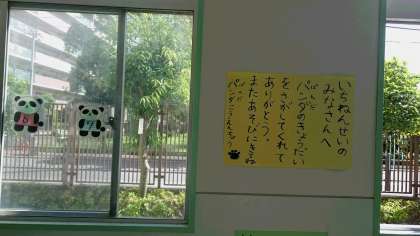 いちねんせいの
みなさんへ
パンダのきょうだい
をさがしてくれて
ありがとう。
またあそびにきてね
パンダこうえんより
6
9